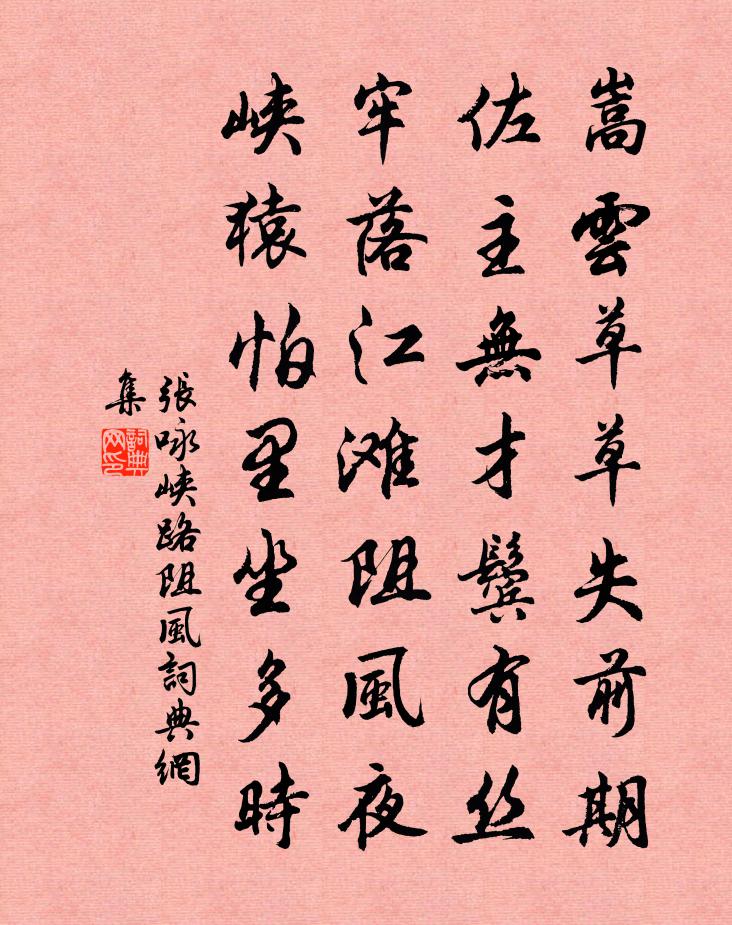 嵩雲草草失前期
佐主無才鬢有丝
牢落江滩阻風夜
峡猿怕里坐多時
張咏峡路阻風詞典網
集
詞典
网印